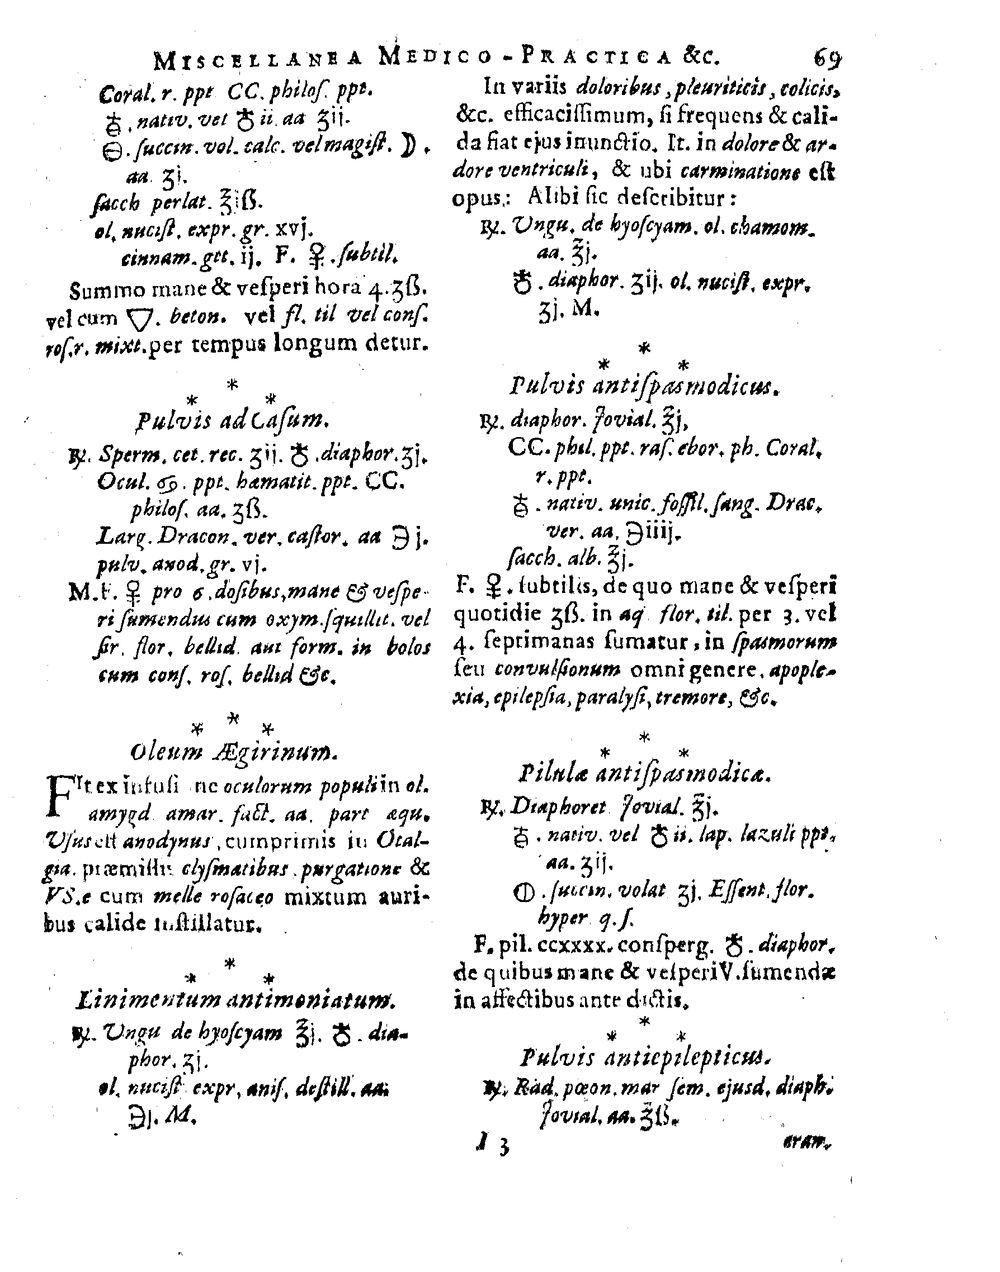 MISCELLANEA MEDICO-PRACTICA &c. 69
Coral. r. ppt CC. philoſ. ppt.
♁. nativ. vel ♁ ii. aa ʒij.
🜔. ſuccin. vol. calc. vel magiſt. ☽.
aa. ʒj.
ſacch perlat. ℥iß.
ol. nuciſt. expr. gr. xvj.
cinnam. gtt. ij. F. ♀. ſubtil.
Summo mane & veſperi hora 4. ʒß.
vel cum 🜄. beton. vel fl. til vel conſ.
roſ. r. mixt. per tempus longum detur.
*
* *
Pulvis ad Caſum.
℞. Sperm. cet. rec. ʒij. ♁. diaphor. ʒj.
Ocul. ♋. ppt. hæmatit. ppt. CC.
philoſ. aa. ʒß.
Larg. Dracon. ver. caſtor. aa ℈j.
pulv. anod. gr. vj.
M. F. ♀ pro 6. doſibus, mane & veſpe-
ri ſumendus cum oxym. ſquillit. vel
ſir. flor. bellid. aut form. in bolos
cum conſ. roſ. bellid &c.
*
* *
Oleum Ægirinum.
FIt ex infuſione oculorum populi in ol.
amygd amar. fact. aa. part æqu.
Uſus eſt anodynus, cumprimis in Otal-
gia. præmiſſis clyſmatibus. purgatione &
VS.e cum melle roſaceo mixtum auri-
bus calide inſtillatur.
*
* *
Linimentum antimoniatum.
℞. Ungu de hyoſcyam ℥j. ♁. dia-
phor. ʒj.
ol. nuciſt expr, aniſ. deſtill. aa.
℈j. M.
In variis doloribus, pleuriticis, colicis,
&c. efficaciſſimum, ſi frequens & cali-
da fiat ejus inunctio. It. in dolore & ar-
dore ventriculi, & ubi carminatione eſt
opus: Alibi ſic deſcribitur:
℞. Ungu. de hyoſcyam. ol. chamom.
aa. ℥j.
♁. diaphor. ʒij. ol. nuciſt. expr.
ʒj. M.
*
* *
Pulvis antiſpasmodicus.
℞. diaphor. Jovial. ℥j.
CC. phil. ppt. raſ. ebor. ph. Coral.
r. ppt.
♁. nativ. unic. foſſil. ſang. Drac.
ver. aa. ℈iiij.
ſacch. alb. ℥j.
F. ♀. ſubtilis, de quo mane & veſperi
quotidie ʒß. in aq flor. til. per 3. vel
4. ſeptimanas ſumatur, in ſpasmorum
ſeu convulſionum omni genere, apople-
xia, epilepſia, paralyſi, tremore, &c.
*
* *
Pilulæ antiſpasmodicæ.
℞. Diaphoret Jovial. ℥j.
♁. nativ. vel ♁ ii. lap. lazuli ppt.
aa. ʒij.
🜕. ſuccin. volat ʒj. Eſſent. flor.
hyper q. ſ.
F. pil. ccxxxx. conſperg. ♁. diaphor.
de quibus mane & veſperi V. ſumendæ
in affectibus ante dictis.
*
* *
Pulvis antiepilepticus.
℞. Rad. pœon. mar ſem. ejusd. diaph.
Jovial. aa. ℥ß.
I 3 aram.